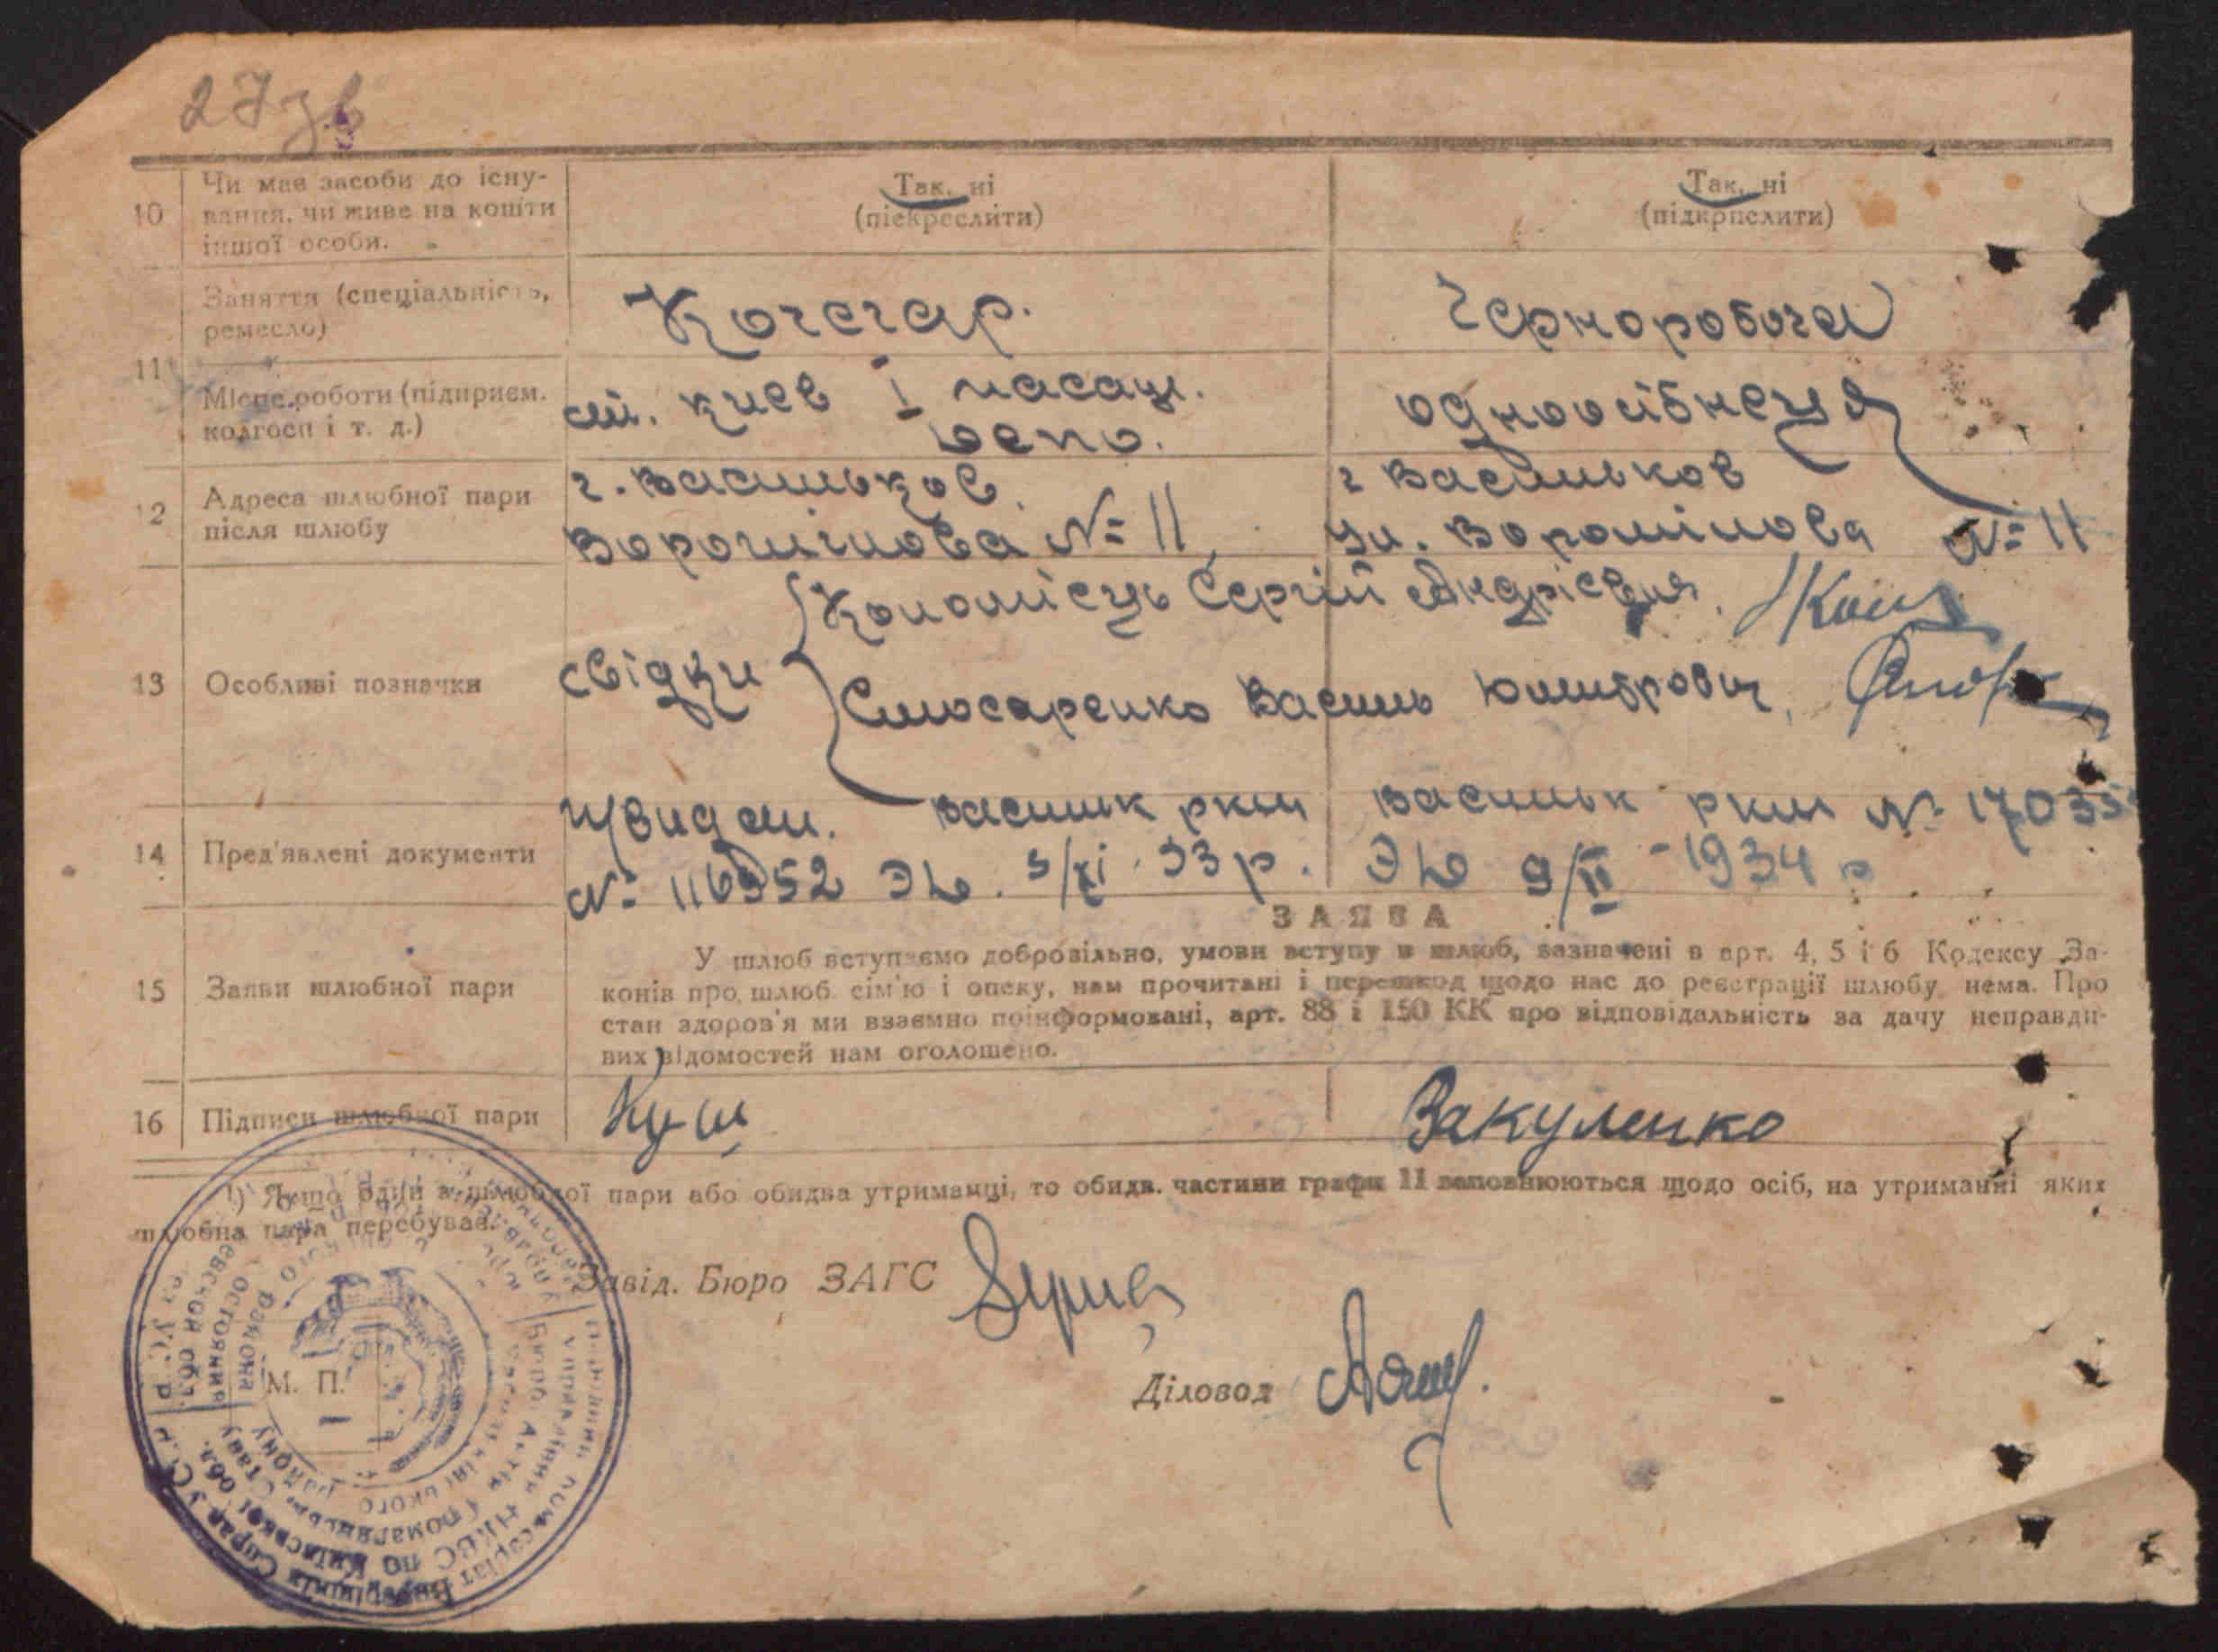 27 зв
10 Чи має засоби до існу-
вання, чи живе на кошти
іншої особи.
Так, ні
(піскреслити)
Так, ні
(підкрпслити)
11 Заняття (спеціальність,
ремесло)
Кочегар.
Чорноробоча
Місце роботи (підприєм.
колгосп і т. д.)
ст. Киев I пасаж.
депо.
одноосібнеця
12 Адреса шлюбної пари
після шлюбу
г. Васильков
Ворошілова № 11,
г Васильков
ул. Ворошілова № 11
13 Особливі позначки
свідки
Коломієць Сергій Андрієвич,
Слюсаренко Василь
14 Пред'явлені документи
Васильк ркм
№ ЭЬ. 5/XI 33 р.
Васильк ркм № 17035
ЭЬ 9/II - 1934 р
ЗАЯВА
15 Заяви шлюбної пари
У шлюб вступаємо добровільно, умови вступу в шлюб, зазначені в арт. 4, 5 і 6 Кодексу За-
конів про шлюб, сім'ю і опеку, нам прочитані і перешкод щодо нас до реєстрації шлюбу нема. Про
стан здоров'я ми взаємно поінформовані, арт. 88 і 150 КК про відповідальність за дачу неправди-
вих відомостей нам оголошено.
16 Підписи шлюбної пари
Куш
Вакуленко
¹) Якщо один з шлюбної пари або обидва утриманці, то обидв. частини графи 11 заповнюються щодо осіб, на утриманні яких
шлюбна пара перебуває.
Завід. Бюро ЗАГС
Діловод
М. П.